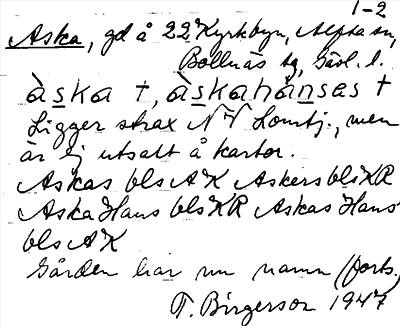 1-2
Aska, gd å 22 Kyrkbyn, Alfta sn,
Bollnäs tg, Gävl. l.
àska †, àskahánsas †
Ligger strax NV Lomtj., men
är ej utsatt å kartor.
Askas bls AK Askers bls KR
Aska Hans bls KR Askas Hans
bls AK
Gården har nu namn (forts.)
T. Birgerson 1947